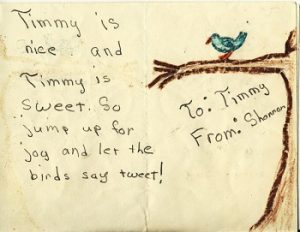 Timmy is
nice and
Timmy is
sweet. So
jump up for
joy and let the
birds say tweet!
To: Timmy
From: Shannon